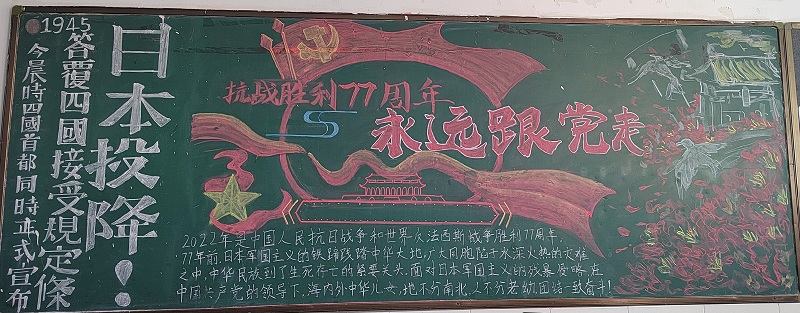 1945
日本投降!
答覆四國接受規定條
今晨時四國首都同時正式宣布
抗战胜利77周年
永远跟党走
2022年是中国人民抗日战争和世界反法西斯战争胜利77周年,
77年前,日本军国主义的铁蹄践踏中华大地,广大同胞陷于水深火热的灾难
之中,中华民族到了生死存亡的紧要关头,面对日本军国主义的残暴侵略,在
中国共产党的领导下,海内外中华儿女,地不分南北,人不分老幼团结一致奋斗!